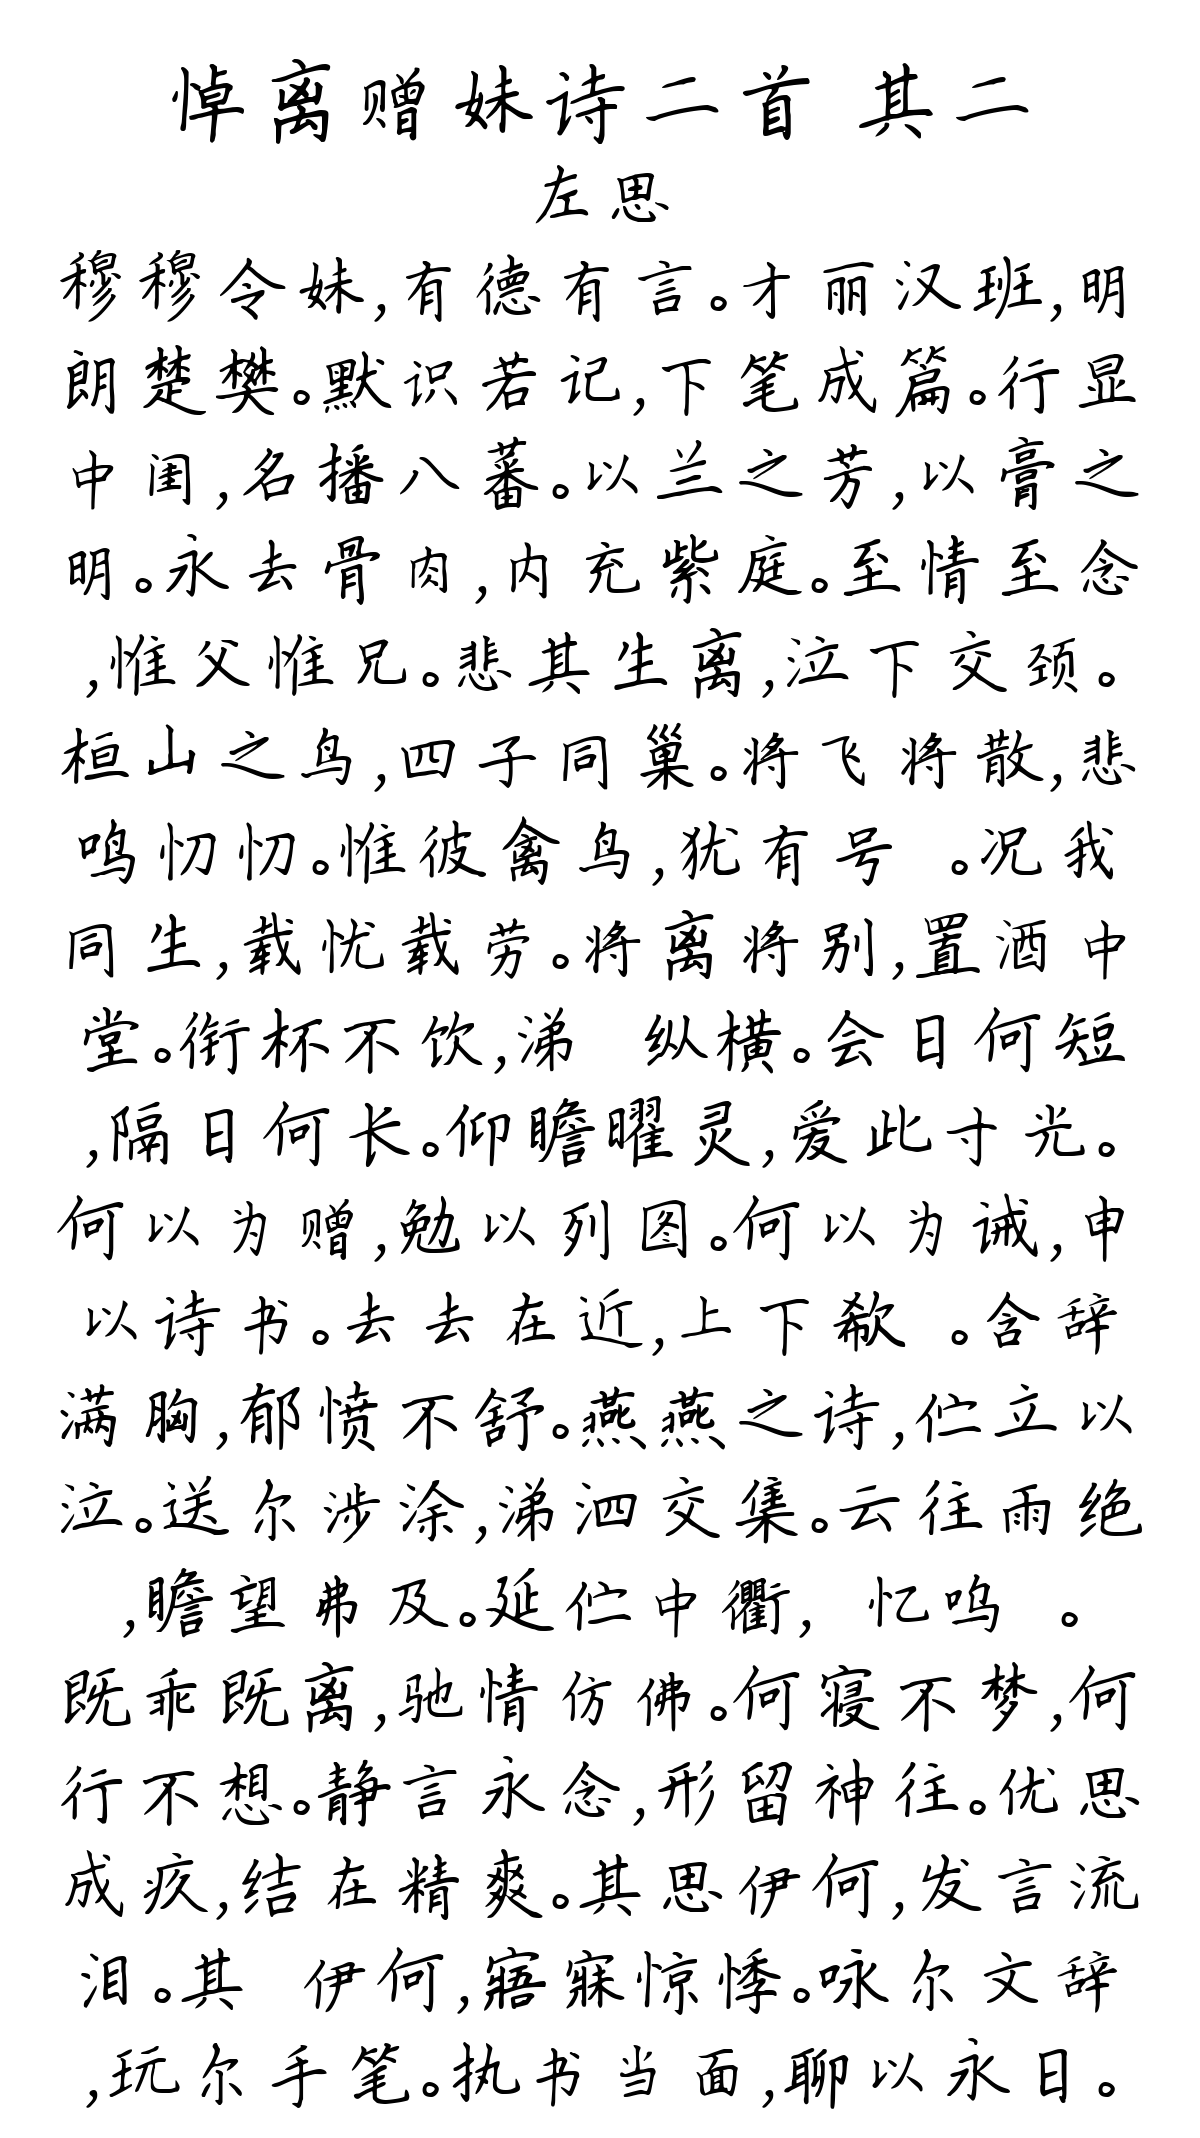 悼离赠妹诗二首 其二
左思
穆穆令妹,有德有言。才丽汉班,明
朗楚樊。默识若记,下笔成篇。行显
中闺,名播八蕃。以兰之芳,以膏之
明。永去骨肉,内充紫庭。至情至念
,惟父惟兄。悲其生离,泣下交颈。
桓山之鸟,四子同巢。将飞将散,悲
鸣忉忉。惟彼禽鸟,犹有号 。况我
同生,载忧载劳。将离将别,置酒中
堂。衔杯不饮,涕 纵横。会日何短
,隔日何长。仰瞻曜灵,爱此寸光。
何以为赠,勉以列图。何以为诫,申
以诗书。去去在近,上下欷 。含辞
满胸,郁愤不舒。燕燕之诗,伫立以
泣。送尔涉涂,涕泗交集。云往雨绝
,瞻望弗及。延伫中衢, 忆呜 。
既乖既离,驰情仿佛。何寝不梦,何
行不想。静言永念,形留神往。优思
成疚,结在精爽。其思伊何,发言流
泪。其 伊何,寤寐惊悸。咏尔文辞
,玩尔手笔。执书当面,聊以永日。